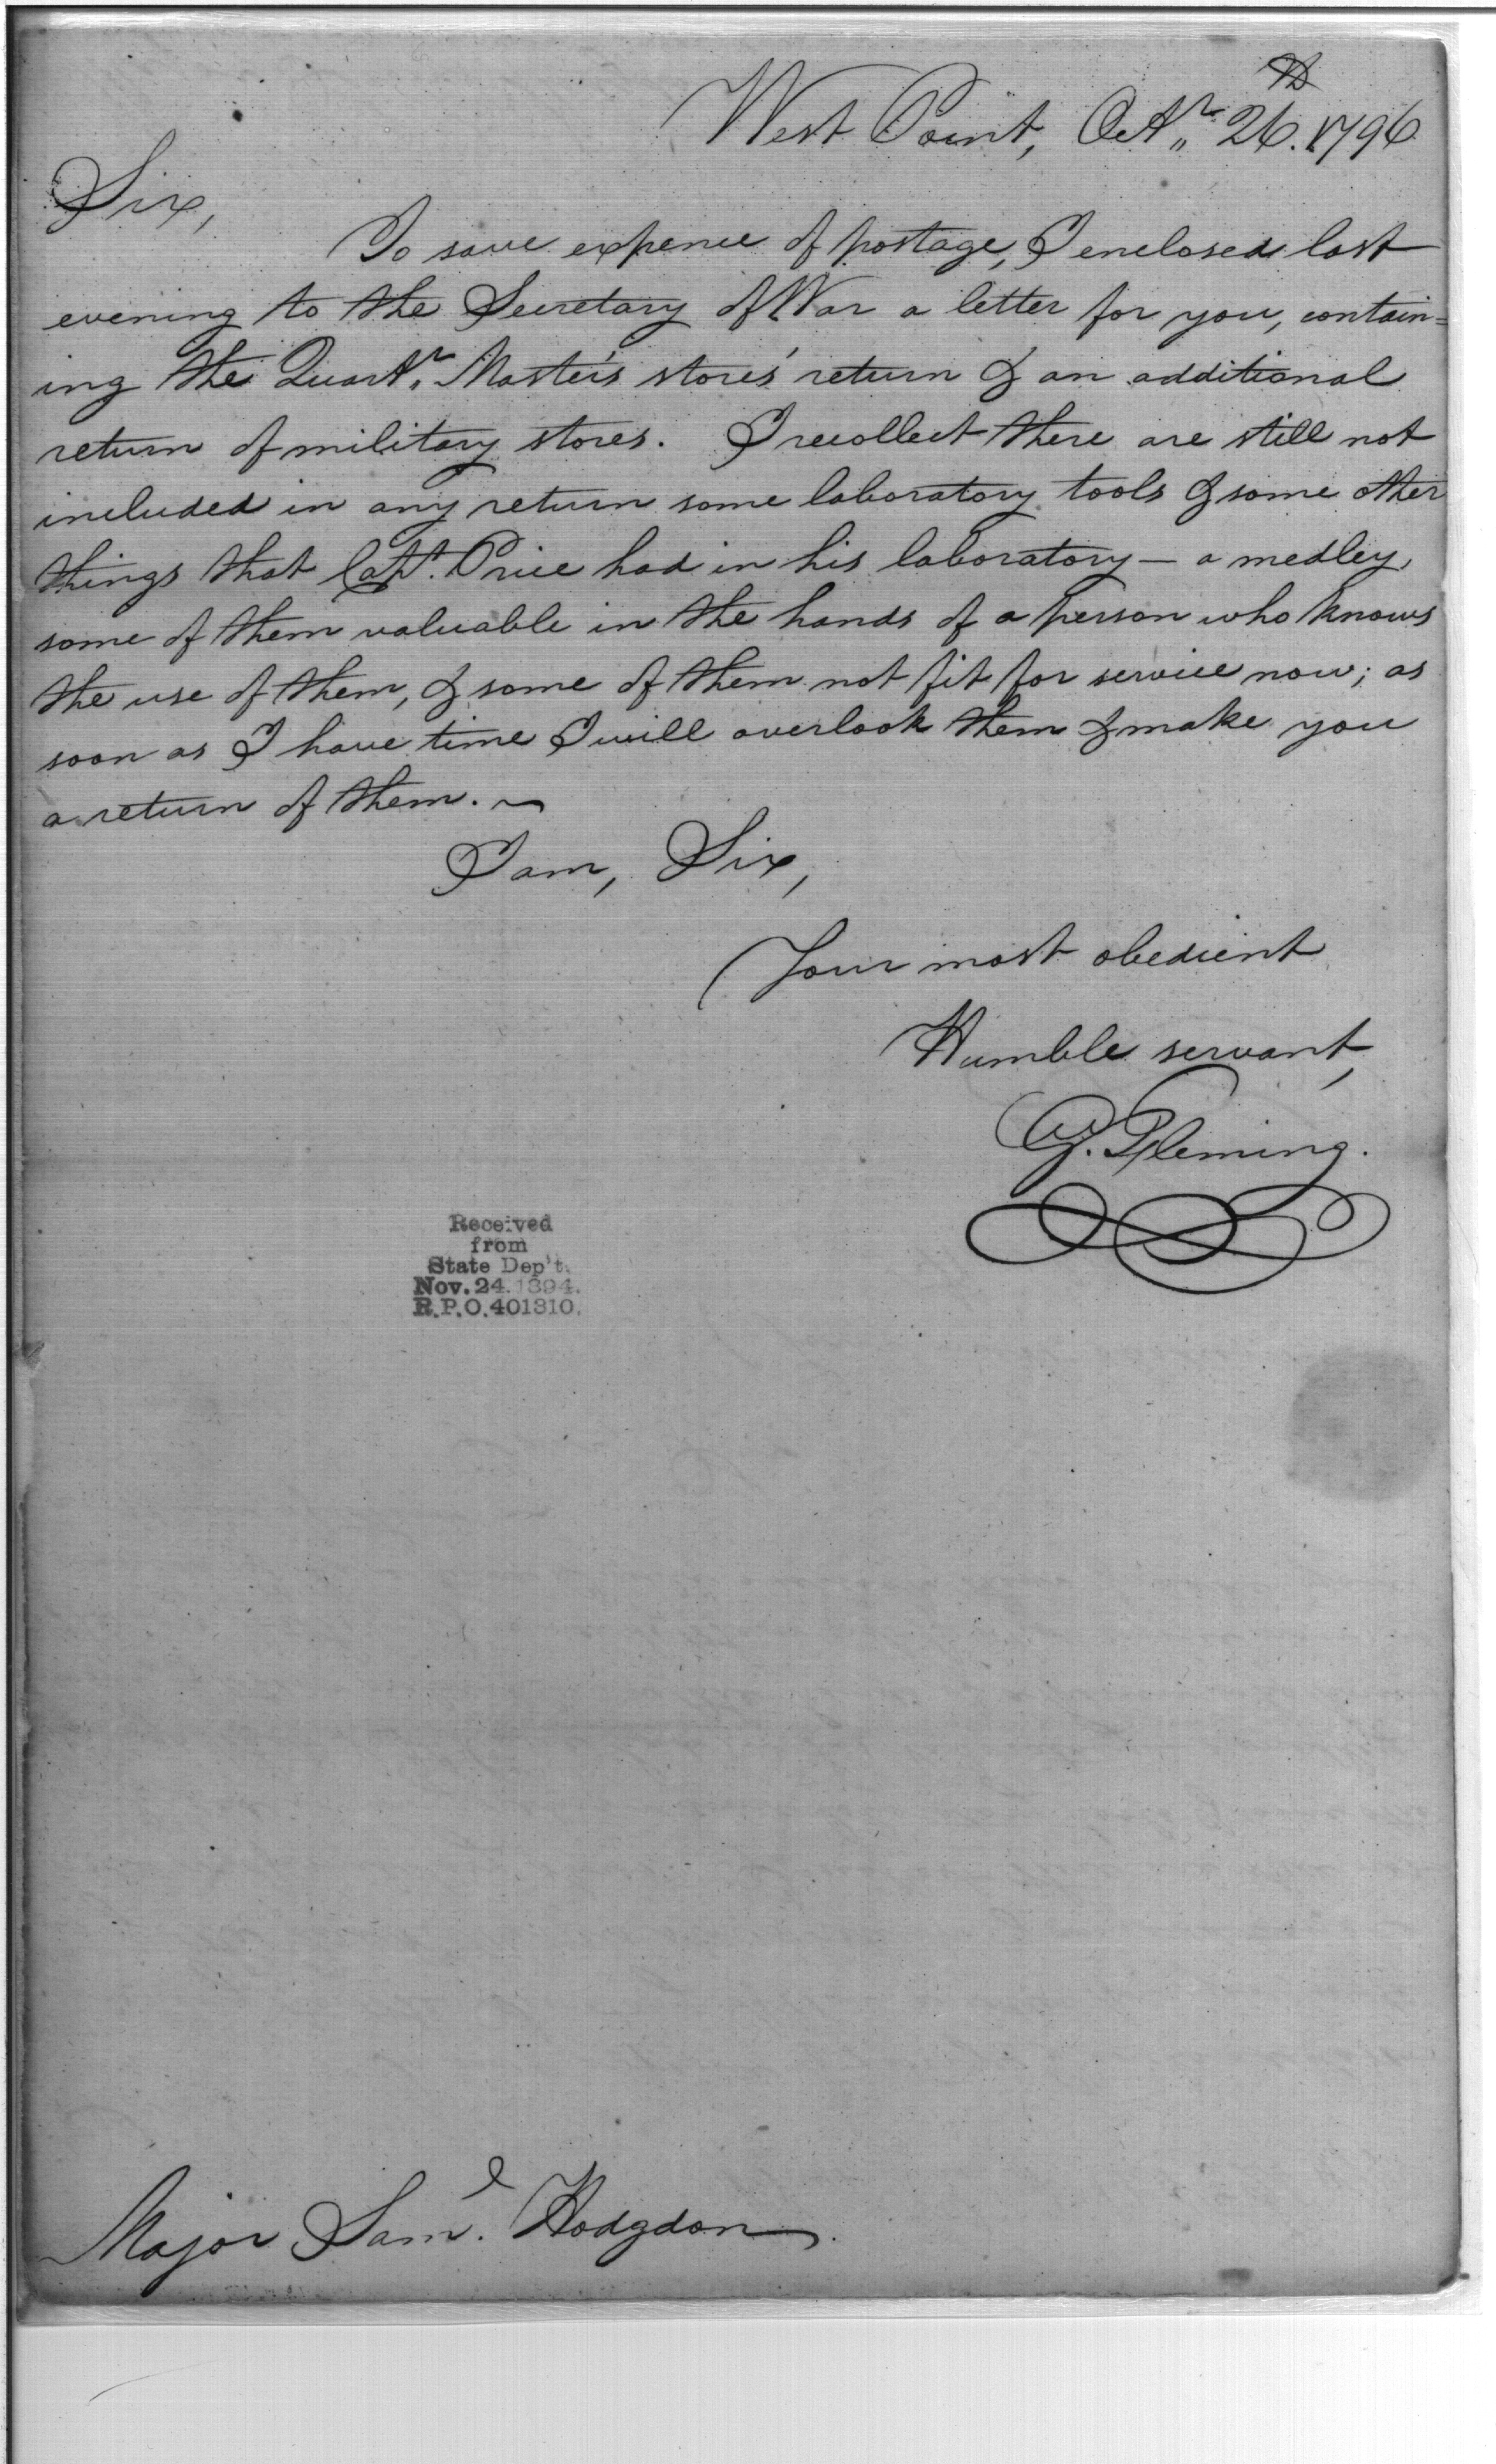 West Point, Octr. 26th. 1796
Sir,
To save expence of postage, I enclosed last
evening to the Secretary of War a letter for you, contain=
ing the Quartr. Master's stores' return & an additional
return of military stores. I recollect there are still not
included in any return some laboratory tools & some other
things that Capt. Price had in his laboratory — a medley,
some of them valuable in the hands of a person who knows
the use of them, & some of them not fit for service now; as
soon as I have time I will overlook them & make you
a return of them. ~
I am, Sir,
Your most obedient
Humble servant,
G. Fleming.
Received
from
State Dep't.
Nov. 24. 1894.
R.P.O. 401310.
Major Saml. Hodgdon.